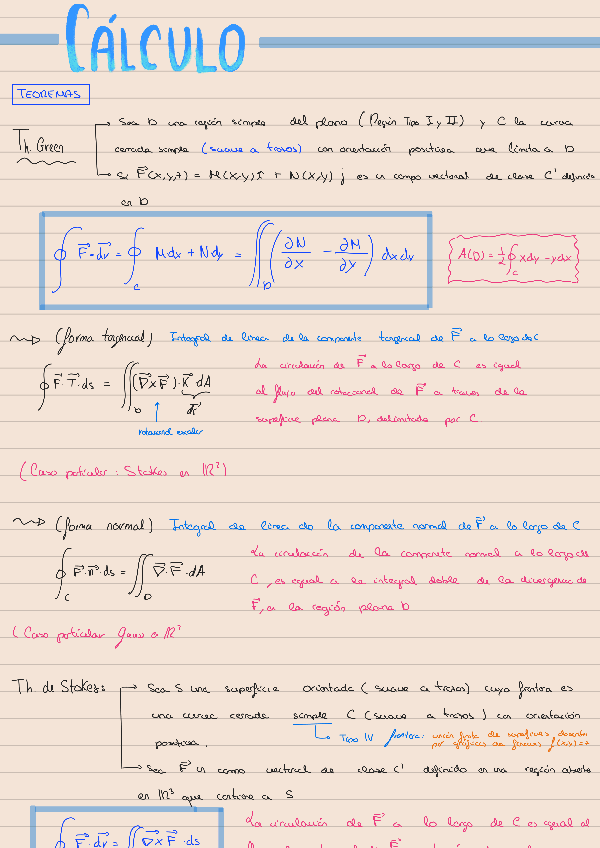 CÁLCULO
TEOREMAS
Th. Green
Sea D una región simple del plano (Región Tipo I y II) y C la curva
cerrada simple (suave a trozos) con orientación positiva que limita a D
Si F⃗(x,y,z) = M(x,y)î + N(x,y) j es un campo vectorial de clase C' definido
en D
∮ F⃗·dr⃗ = ∮_C Mdx + Ndy = ∬_D (∂N/∂x - ∂M/∂y) dxdy
A(D) = ½∮_C xdy - ydx
(forma tangencial) Integral de línea de la componente tangencial de F⃗ a lo largo de C
∮ F⃗·T⃗·ds = ∬_D (∇⃗xF⃗)·K⃗ dA
rotacional escalar
La circulación de F⃗ a lo largo de C es igual
al flujo del rotacional de F⃗ a traves de la
superficie plana D, delimitada por C
(Caso particular: Stokes en ℝ²)
(forma normal) Integral de línea de la componente normal de F⃗ a lo largo de C
∮_C F⃗·n⃗·ds = ∬_D ∇⃗·F⃗·dA
La circulación de la componente normal a lo largo de
C, es igual a la integral doble de la divergencia de
F⃗, en la región plana D
(Caso particular Gauss a ℝ²
Th de Stokes:
Sea S una superficie orientada (suave a trozos) cuya frontera es
una curva cerrada simple C (suave a trozos) con orientación
positiva.
Tipo IV frontera: unión finita de superficies descritas
por gráficas de formas f(x,y)=z
Sea F⃗ un campo vectorial de clase C' definido en una región abierta
en ℝ³ que contiene a S
∮ F⃗·dr⃗ = ∬ ∇⃗xF⃗·ds
La circulación de F⃗ a lo largo de C es igual al